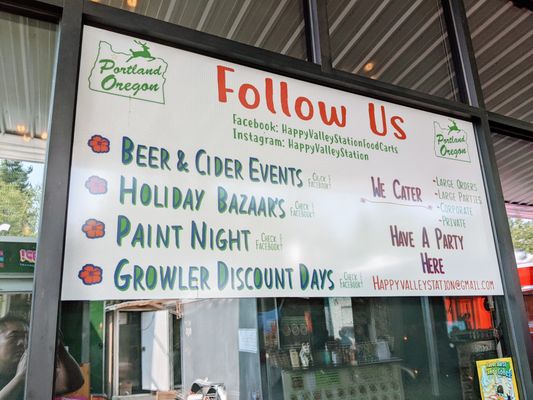 Portland
Oregon
Follow Us
Facebook: HappyValleyStationFoodCarts
Instagram: HappyValleyStation
Portland
Oregon
Beer & Cider Events
Click Facebook!
Holiday Bazaar's
Check Facebook!
Paint Night
Check Facebook!
Growler Discount Days
Check Facebook!
We Cater
-Large Orders
-Large Parties
-Corporate
-Private
Have A Party
Here
HappyValleyStation@gmail.com